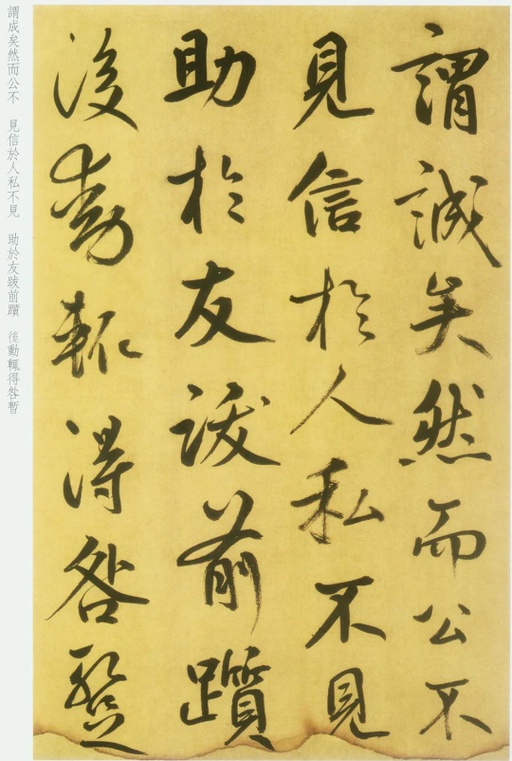 謂誠矣然而公不
見信於人私不見
助於友跋前躓
後動輒得咎暫
謂成矣然而公不 見信於人私不見 助於友跋前躓 後動輒得咎暫